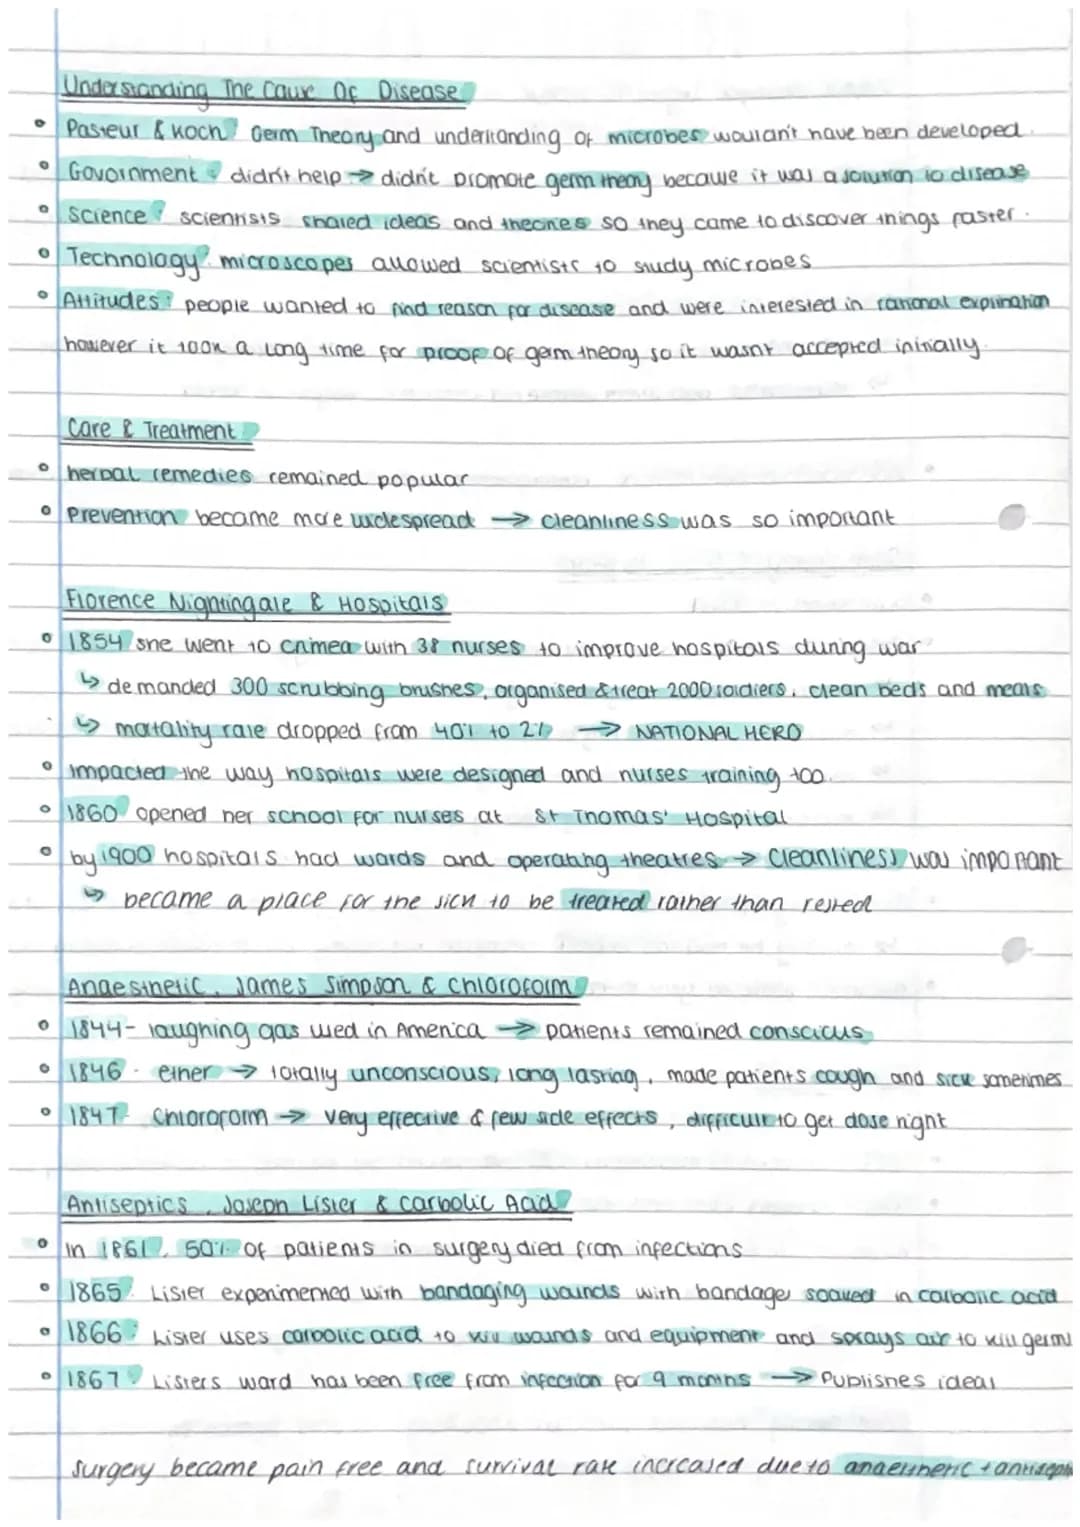 Understanding The Cause Of Disease
• Pasteur & Koch: Germ Theory and understanding of microbes wouldn't have been developed.
• Government: didn't help → didn't promote germ theory because it was a solution to disease
• Science: scientists shared ideas and theories so they came to discover things faster.
• Technology: microscopes allowed scientists to study microbes
• Attitudes: people wanted to find reason for disease and were interested in rational explination
however it took a long time for proof of germ theory so it wasn't accepted initially.
Care & Treatment
• herbal remedies remained popular
• Prevention became more widespread → cleanliness was so important
Florence Nightingale & Hospitals
• 1854 she went to crimea with 38 nurses to improve hospitals during war
↳ demanded 300 scrubbing brushes, organised & treat 2000 soldiers, clean beds and meals
↳ mortality rate dropped from 40% to 2% → NATIONAL HERO
• Impacted the way hospitals were designed and nurses training too.
• 1860 opened her school for nurses at St Thomas' Hospital
• by 1900 hospitals had wards and operating theatres → cleanliness was important
↳ became a place for the sick to be treated rather than rested
Anaesthetic, James Simpson & Chloroform
• 1844- laughing gas used in America → patients remained conscious
• 1846 - ether → totally unconscious, long lasting, made patients cough and sick sometimes
• 1847- Chloroform → very effective & few side effects, difficult to get dose right
Antiseptics, Joseph Lister & Carbolic Acid
• in 1861, 50% of patients in surgery died from infections
• 1865: Lister experimented with bandaging wounds with bandage soaked in carbolic acid
• 1866: Lister uses carbolic acid to wounds and equipment and sprays air to kill germs
• 1867: Listers ward has been free from infection for 9 months → Publishes ideas
surgery became pain free and survival rate increased due to anaesthetic +